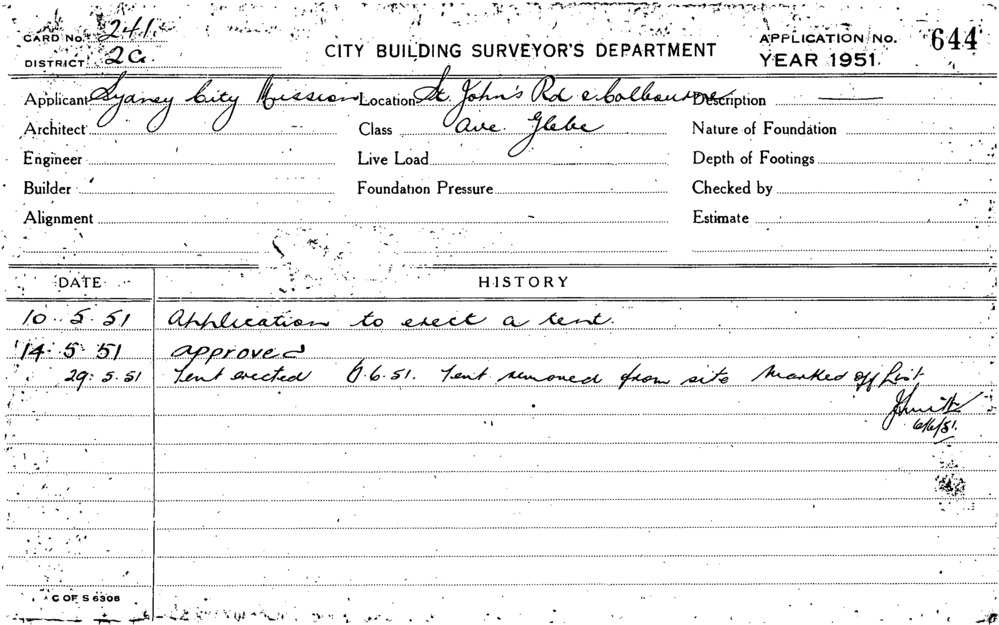 CARD No. 241.
DISTRICT 2G.
CITY BUILDING SURVEYOR'S DEPARTMENT
APPLICATION No. 644
YEAR 1951.
Applicant Sydney City Mission Location St. John's Rd & Colbourne Description
Architect Class Ave. Glebe Nature of Foundation
Engineer Live Load Depth of Footings
Builder Foundation Pressure Checked by
Alignment Estimate
DATE HISTORY
10. 5. 51 Application to erect a tent.
14. 5. 51 approved
29. 5. 51 Tent erected 6.6.51. Tent removed from site Marked off List
6/6/51.
C OF S 6308